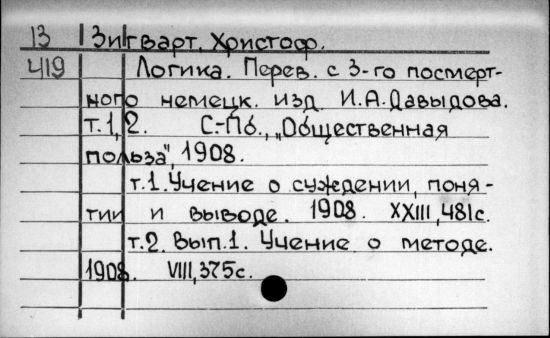 13 Зигварт, Христоф.
419 Логика. Перев. с 3-го посмерт-
ного немецк. изд. И.А.Давыдова.
т.1,2. С.-Пб., „Общественная
польза", 1908.
т.1. Учение о суждении, поня-
тии и выводе. 1908. XXIII, 481с.
т.2. Вып.1. Учение о методе.
1908. VIII, 375с.